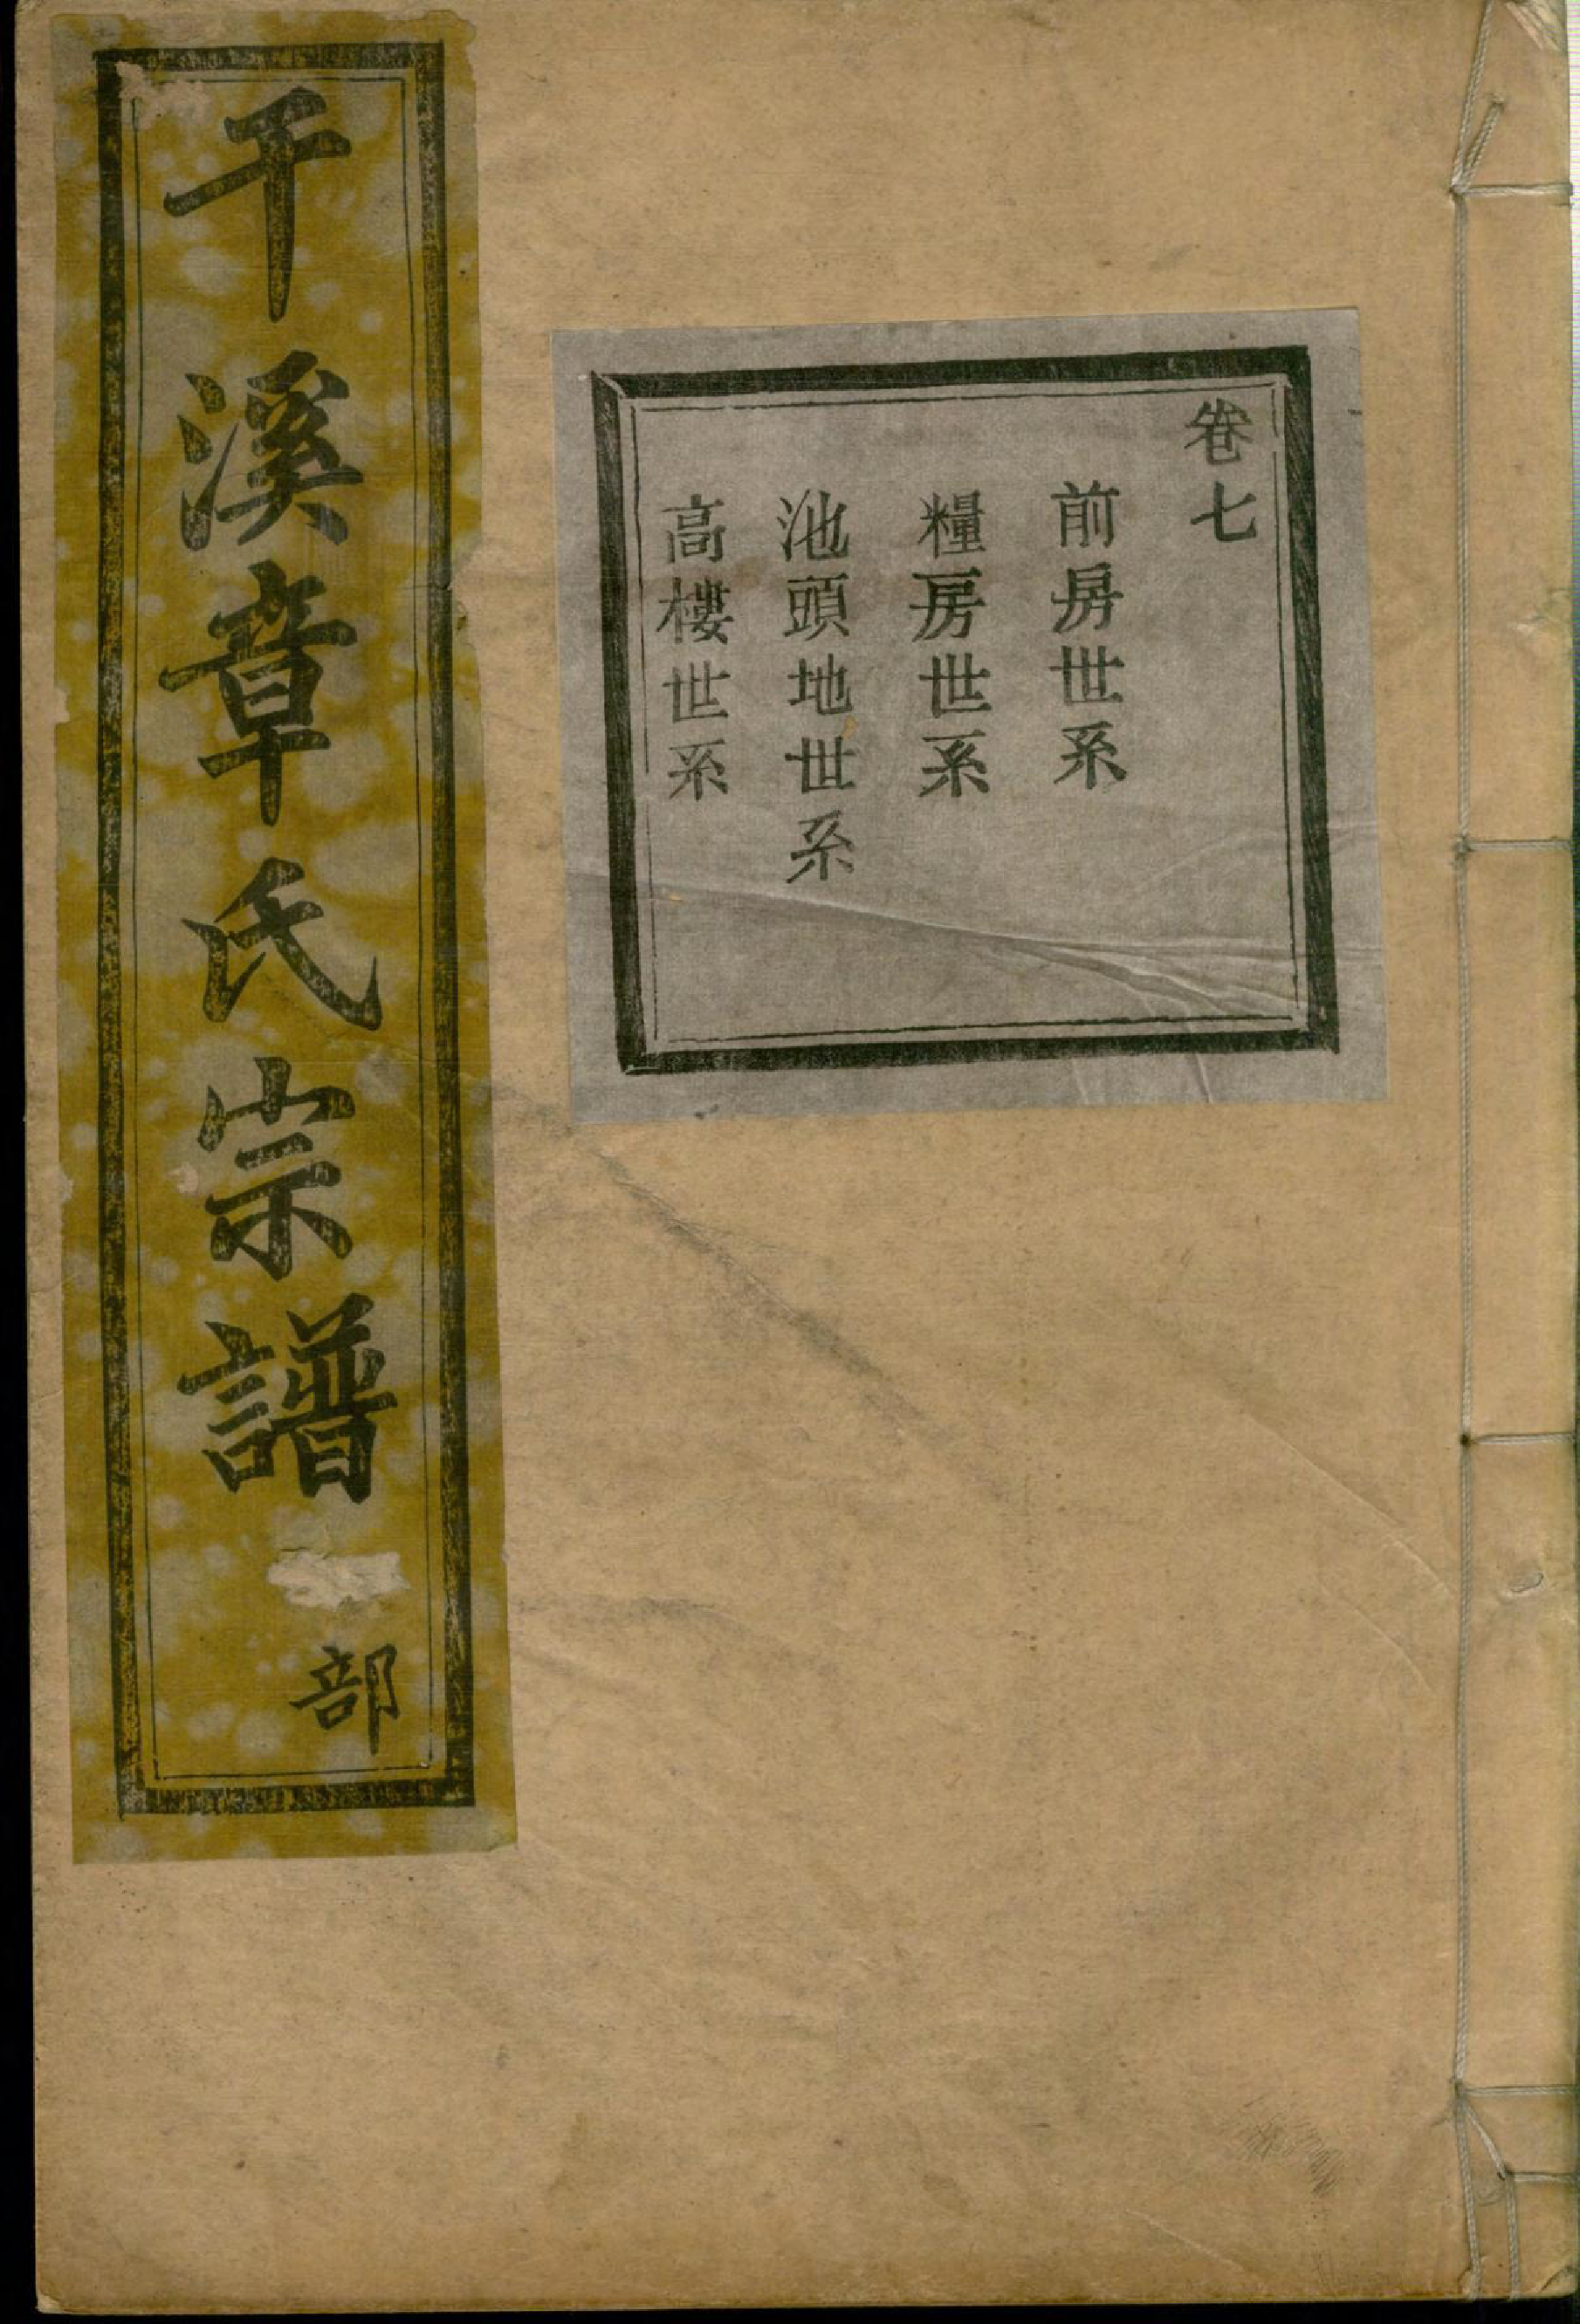 卷七
前房世系
糧房世系
池頭地世系
高樓世系
干溪章氏宗譜
部